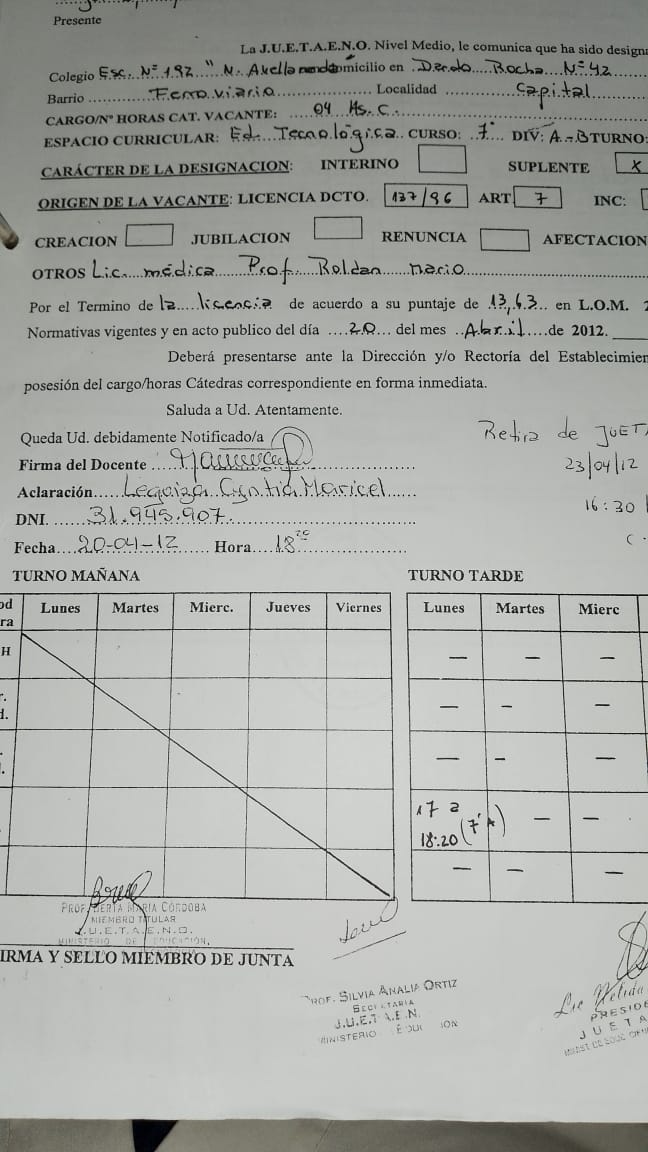 Presente
La J.U.E.T.A.E.N.O. Nivel Medio, le comunica que ha sido design
Colegio Esc. Nº 192 "N. Avellaneda domicilio en Dardo Rocha Nº 42
Barrio Ferroviario Localidad Capital
CARGO/Nº HORAS CAT. VACANTE: 04 Hs. C.
ESPACIO CURRICULAR: Ed. Tecnológica CURSO: 7º DIV: A-B TURNO:
CARÁCTER DE LA DESIGNACION: INTERINO SUPLENTE X
ORIGEN DE LA VACANTE: LICENCIA DCTO. 137/96 ART 7 INC:
CREACION JUBILACION RENUNCIA AFECTACION
OTROS Lic. médica Prof. Roldan Mario
Por el Termino de la licencia de acuerdo a su puntaje de 13,63 en L.O.M.
Normativas vigentes y en acto publico del día 20 del mes Abril de 2012.
Deberá presentarse ante la Dirección y/o Rectoría del Establecimien
posesión del cargo/horas Cátedras correspondiente en forma inmediata.
Saluda a Ud. Atentamente.
Queda Ud. debidamente Notificado/a
Retira de JUETA
Firma del Docente
23/04/12
Aclaración Legaiza Cyntia Maricel
16:30
DNI. 31.945.907
Fecha 20-04-12 Hora 18
TURNO MAÑANA TURNO TARDE
od
ra Lunes Martes Mierc. Jueves Viernes Lunes Martes Mierc
H — — —
— — —
— — —
17 a
18:20 (7º A) — —
— — —
PROF. BERTA MARIA CÓRDOBA
MIEMBRO TITULAR
J.U.E.T.A.E.N.O.
MINISTERIO DE EDUCACIÓN,
IRMA Y SELLO MIEMBRO DE JUNTA
PROF. SILVIA ANALIA ORTIZ
SECRETARIA
J.U.E.T.A.E.N.
MINISTERIO EDUCACION
Lic Nelida
PRESIDE
JUETA